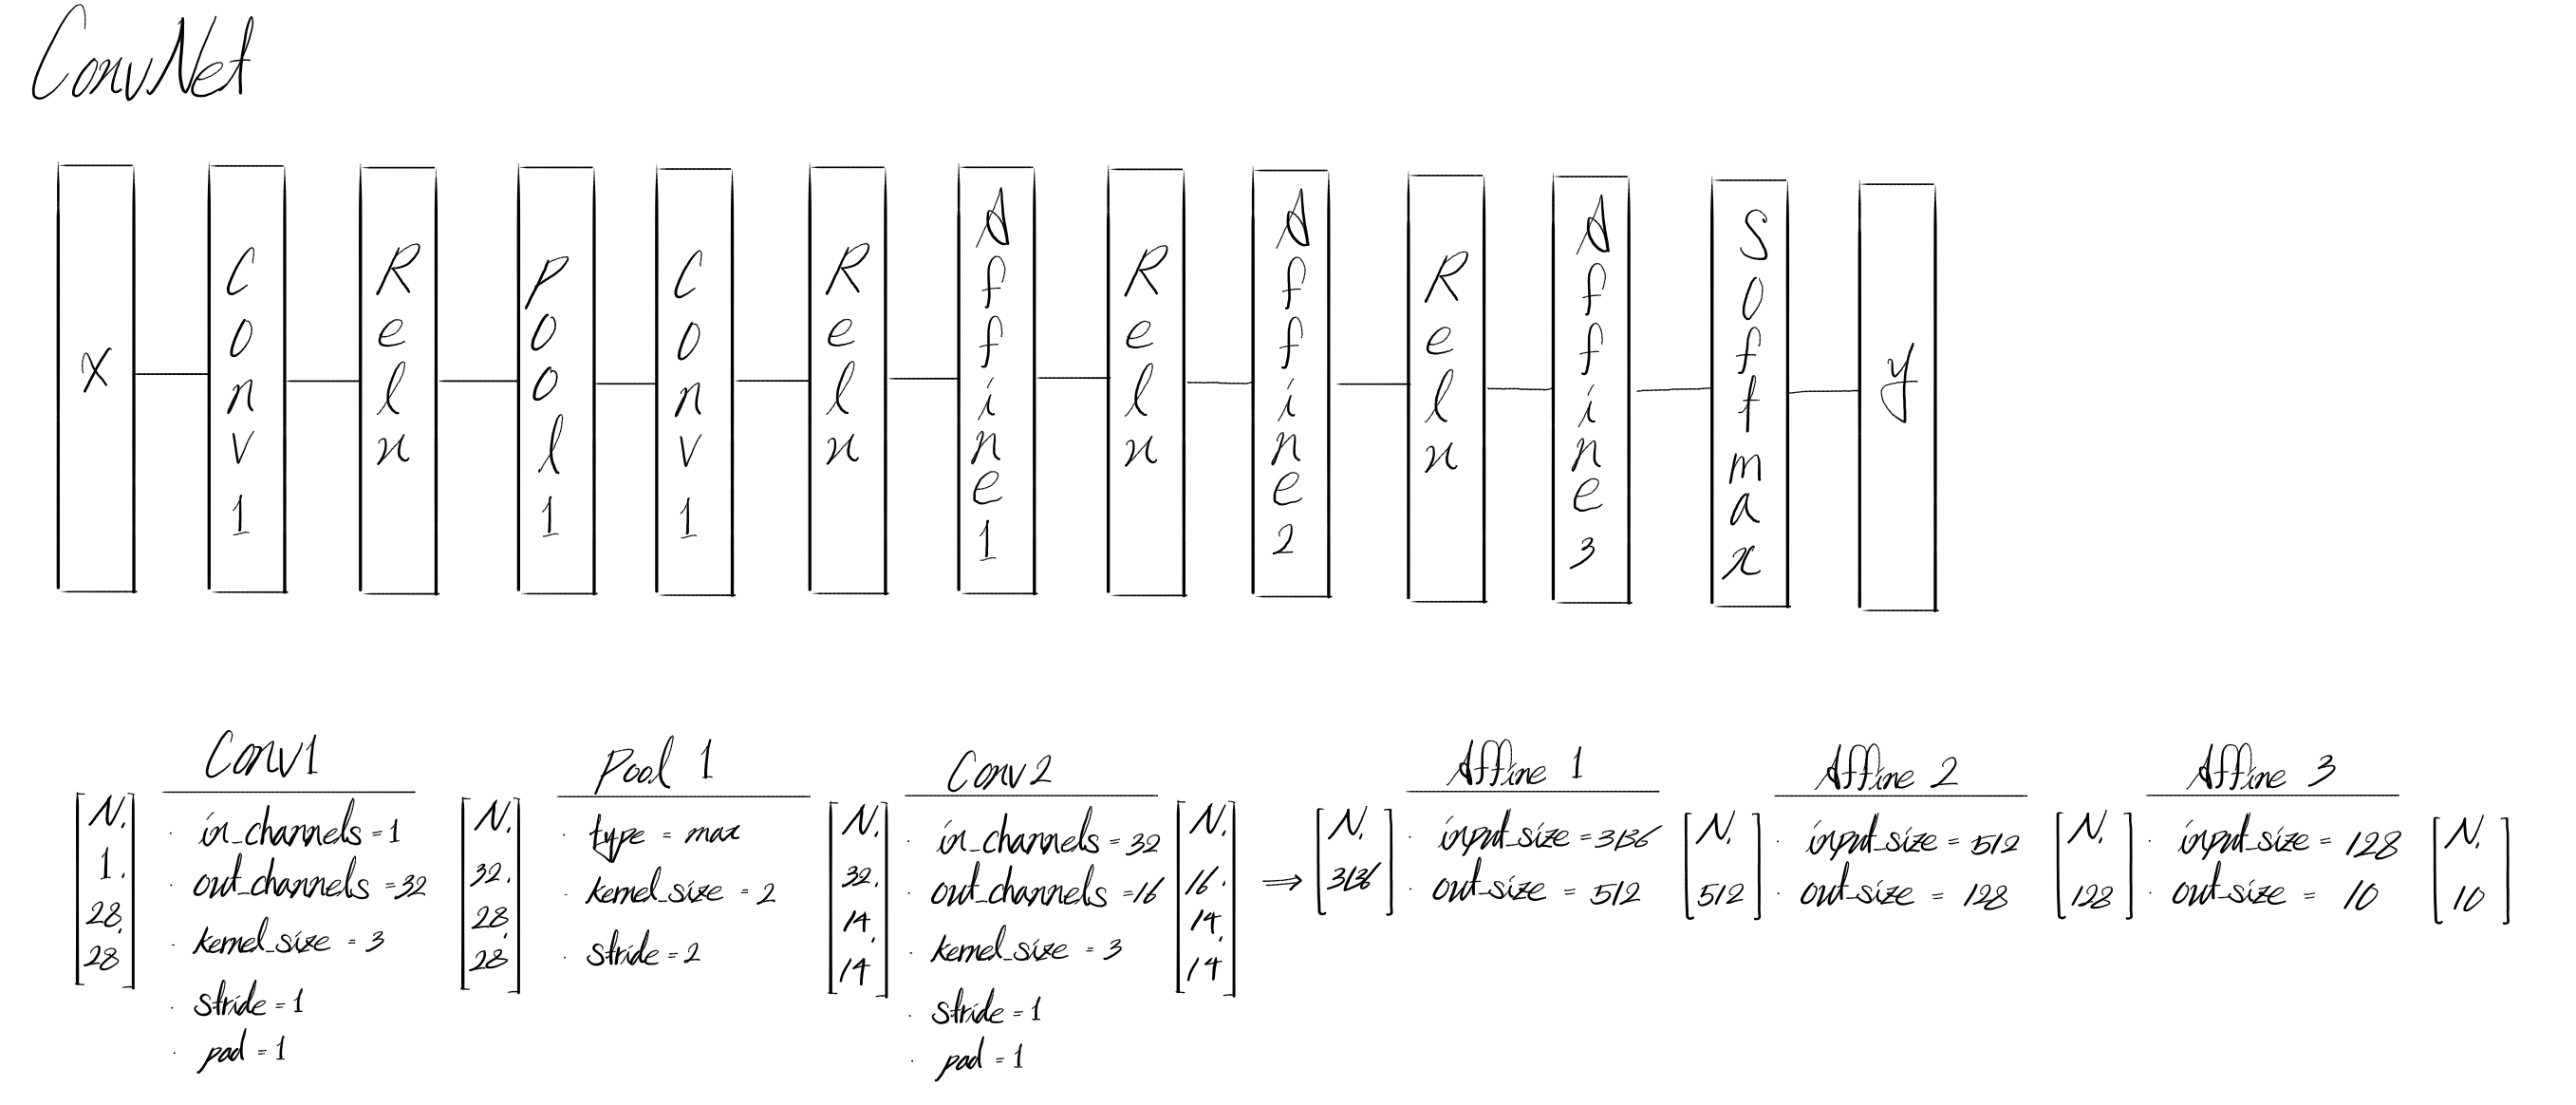 ConvNet
X
Conv1
Relu
Pool1
Conv1
Relu
Affine1
Relu
Affine2
Relu
Affine3
Softmax
y
[N,
1,
28,
28]
Conv1
· in_channels = 1
· out_channels = 32
· kernel_size = 3
· stride = 1
· pad = 1
[N,
32,
28,
28]
Pool 1
· type = max
· kernel_size = 2
· stride = 2
[N,
32,
14,
14]
Conv2
· in_channels = 32
· out_channels = 16
· kernel_size = 3
· stride = 1
· pad = 1
[N,
16,
14,
14]
⇒
[N,
3136]
Affine 1
· input_size = 3136
· out_size = 512
[N,
512]
Affine 2
· input_size = 512
· out_size = 128
[N,
128]
Affine 3
· input_size = 128
· out_size = 10
[N,
10]